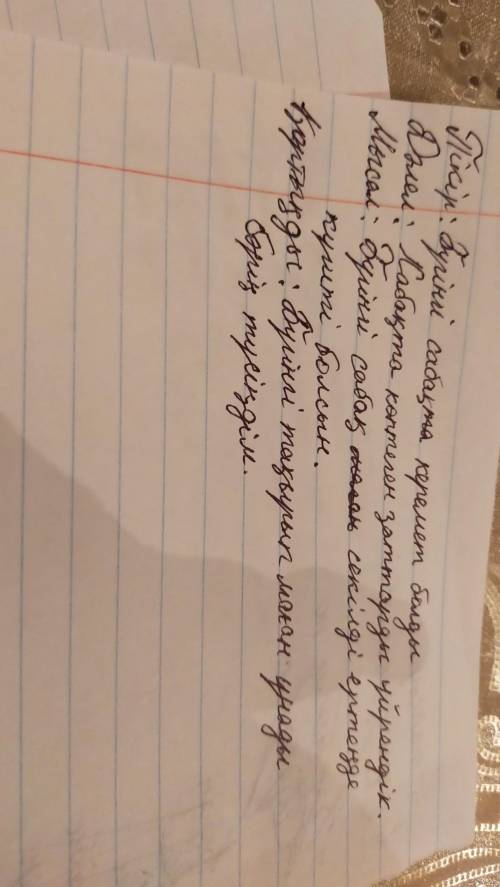 Пікір: Бүгінгі сабақта керемет болды
Дәлел: Сабақта көптеген заттарды үйрендік.
Мысал: Бүгінгі сабақ секілді ертеңде
күшті болсын.
Қортынды: Бүгінгі тақырып маған ұнады
бәріц түсіндім.